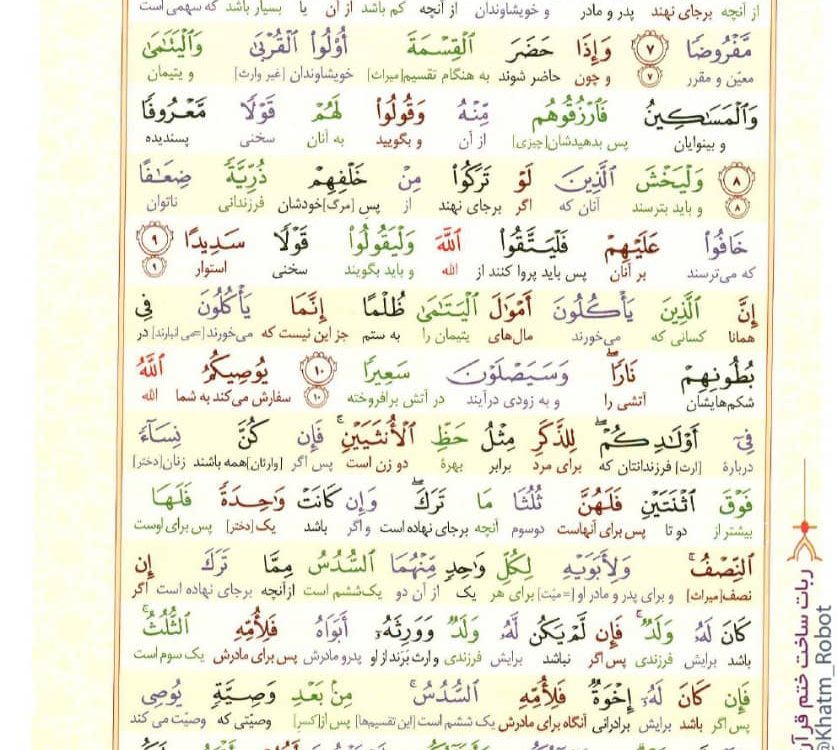 از آنچه برجای نهند پدر و مادر و خویشاوندان از آنچه کم باشد از آن یا بسیار باشد که سهمی است
مَّفْرُوضًا ۷ وَإِذَا حَضَرَ ٱلْقِسْمَةَ أُوْلُوا۟ ٱلْقُرْبَىٰ وَٱلْيَتَٰمَىٰ
معیّن و مقرر ۷ و چون حاضر شوند به هنگام تقسیم[میراث] خویشاوندان [غیر وارث] و یتیمان
وَٱلْمَسَٰكِينُ فَٱرْزُقُوهُم مِّنْهُ وَقُولُوا۟ لَهُمْ قَوْلًا مَّعْرُوفًا
و بینوایان پس بدهیدشان[چیزی] از آن و بگویید به آنان سخنی پسندیده
۸ وَلْيَخْشَ ٱلَّذِينَ لَوْ تَرَكُوا۟ مِنْ خَلْفِهِمْ ذُرِّيَّةً ضِعَٰفًا
۸ و باید بترسند آنان که اگر برجای نهند از پس [مرگ]خودشان فرزندانی ناتوان
خَافُوا۟ عَلَيْهِمْ فَلْيَتَّقُوا۟ ٱللَّهَ وَلْيَقُولُوا۟ قَوْلًا سَدِيدًا ۹
که می‌ترسند بر آنان پس باید پروا کنند از الله و باید بگویند سخنی استوار ۹
إِنَّ ٱلَّذِينَ يَأْكُلُونَ أَمْوَٰلَ ٱلْيَتَٰمَىٰ ظُلْمًا إِنَّمَا يَأْكُلُونَ فِى
همانا کسانی که می‌خورند مال‌های یتیمان را به ستم جز این نیست که می‌خورند[=می انبارند] در
بُطُونِهِمْ نَارًا ۖ وَسَيَصْلَوْنَ سَعِيرًا ۱۰ يُوصِيكُمُ ٱللَّهُ
شکم‌هایشان آتشی را و به زودی درآیند در آتش برافروخته ۱۰ سفارش می‌کند به شما الله
فِىٓ أَوْلَٰدِكُمْ ۖ لِلذَّكَرِ مِثْلُ حَظِّ ٱلْأُنثَيَيْنِ ۚ فَإِن كُنَّ نِسَآءً
دربارهٔ [ارث] فرزندانتان که برای مرد برابر بهرهٔ دو زن است پس اگر [وارثان]همه باشند زنان[دختر]
فَوْقَ ٱثْنَتَيْنِ فَلَهُنَّ ثُلُثَا مَا تَرَكَ ۖ وَإِن كَانَتْ وَٰحِدَةً فَلَهَا
بیشتر از دو تا پس برای آنهاست دوسوم آنچه برجای نهاده است و اگر باشد یک [دختر] پس برای اوست
ٱلنِّصْفُ ۚ وَلِأَبَوَيْهِ لِكُلِّ وَٰحِدٍ مِّنْهُمَا ٱلسُّدُسُ مِمَّا تَرَكَ إِن
نصف[میراث] و برای پدر و مادر او [=میّت] برای هر یک از آن دو یک‌ششم است از آنچه برجای نهاده است اگر
كَانَ لَهُۥ وَلَدٌ ۚ فَإِن لَّمْ يَكُن لَّهُۥ وَلَدٌ وَوَرِثَهُۥٓ أَبَوَاهُ فَلِأُمِّهِ ٱلثُّلُثُ ۚ
باشد برایش فرزندی پس اگر نباشد برایش فرزندی و ارث بَرَند از او پدر و مادرش پس برای مادرش یک سوم است
فَإِن كَانَ لَهُۥٓ إِخْوَةٌ فَلِأُمِّهِ ٱلسُّدُسُ ۚ مِنۢ بَعْدِ وَصِيَّةٍ يُوصِى
پس اگر باشد برایش برادرانی آنگاه برای مادرش یک ششم است [این تقسیم‌ها] پس از[کسر] وصیّتی که وصیّت می کند
ربات ساخت ختم قرآن
Khatm_Robot